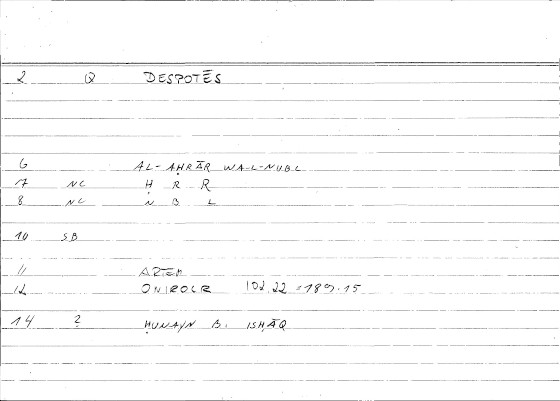 2 Q DESPOTĒS
6 AL-AḤRĀR WA-L-NUBL
7 NC Ḥ R R
8 NC N B L
10 SB
11 ARTEM
12 ONIROCR 102.22 = 189.15
14 2 ḤUNAYN B. ISḤĀQ